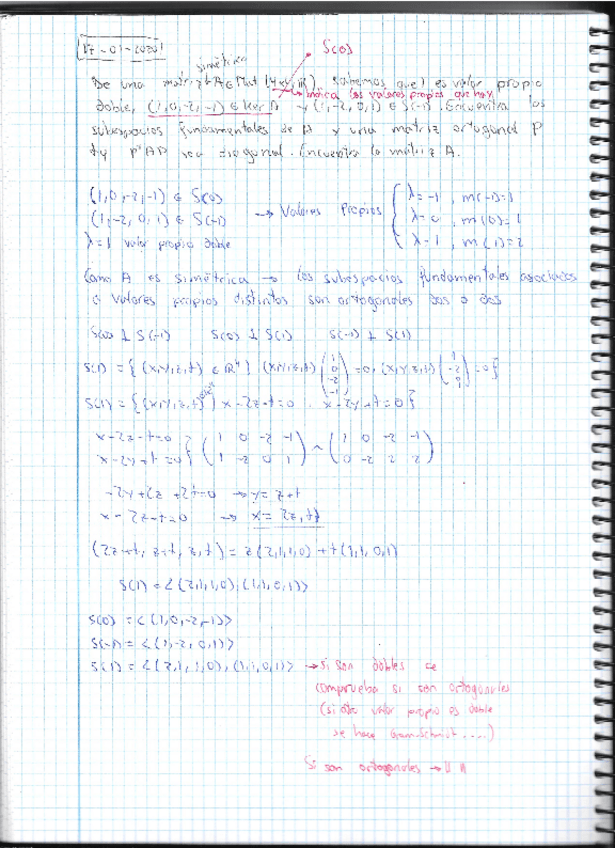 17-01-2020
S(0)
simétrica
De una matriz A ∈ Mat (4x4, ℝ) sabemos que 1 es valor propio
indica los valores propios que hay
doble, (1,0,-2,-1) ∈ Ker A y (1,-2,0,1) ∈ S(-1). Encuentra los
subespacios fundamentales de A y una matriz ortogonal P
tq PᵗAP sea diagonal. Encuentra la matriz A.
(1,0,-2,-1) ∈ S(0)
(1,-2,0,1) ∈ S(-1) → Valores propios { λ=-1, m(-1)=1
λ=0, m(0)=1
λ=1 valor propio doble
λ=1, m(1)=2
Como A es simétrica → los subespacios fundamentales asociados
a valores propios distintos son ortogonales dos a dos
S(0) ⊥ S(-1) S(0) ⊥ S(1) S(-1) ⊥ S(1)
S(1) = { (x,y,z,t) ∈ ℝ⁴ | (x,y,z,t) (1 0 -2 -1) = 0, (x,y,z,t) (1 -2 0 1) = 0 }
S(1) = { (x,y,z,t) | x-2z-t=0, x-2y+t=0 }
x-2z-t=0 } ( 1 0 -2 -1 ) ~ ( 1 0 -2 -1 )
x-2y+t=0 } ( 1 -2 0 1 ) ( 0 -2 2 2 )
-2y+2z+2t=0 → y=z+t
x-2z-t=0 → x=2z+t
(2z+t, z+t, z, t) = z(2,1,1,0) + t(1,1,0,1)
S(1) = <(2,1,1,0), (1,1,0,1)>
S(0) = <(1,0,-2,-1)>
S(-1) = <(1,-2,0,1)>
S(1) = <(2,1,1,0), (1,1,0,1)> → si son dobles se
comprueba si son ortogonales
(si otro valor propio es doble
se hace Gram-Schmidt ....)
Si son ortogonales →